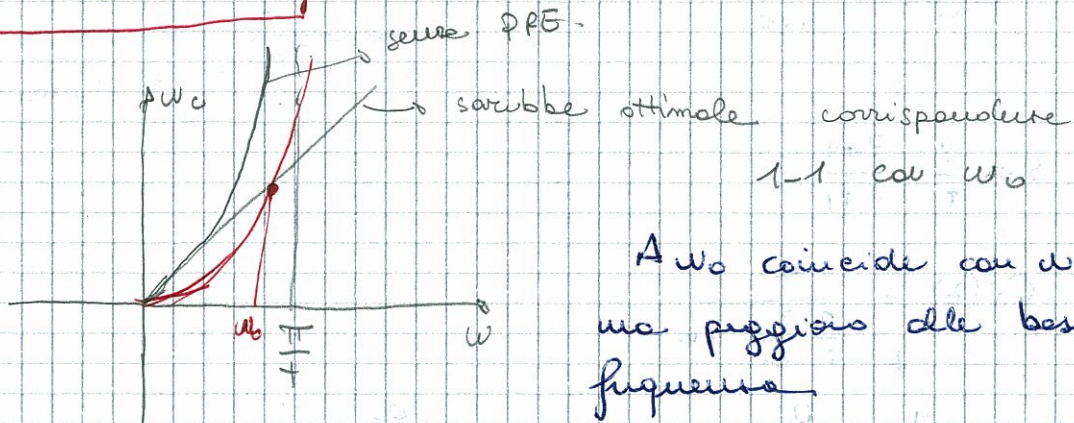 senza PRE.
sarebbe ottimale corrispondenza
1-1 con ω₀
ω₀
ω
π
T
A ω₀ coincide con
ma peggiora alle bas
frequenza